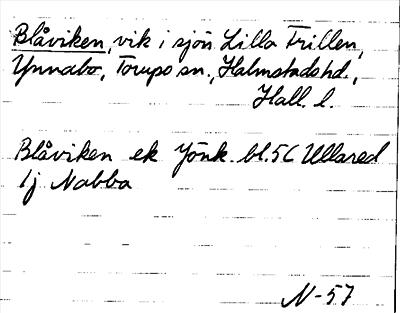 Blåviken, vik i sjön Lilla Trillen,
Ynnabo, Torupo sn., Halmstads hd.,
Hall. l.
Blåviken ek Jönk. bl. 5C Ullared
1j Nabba
N-57